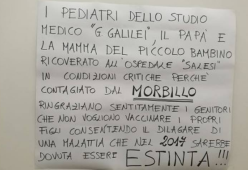 I PEDIATRI DELLO STUDIO
MEDICO "G GALILEI", IL PAPÀ E
LA MAMMA DEL PICCOLO BAMBINO
RICOVERATO ALL'OSPEDALE "SALESI"
IN CONDIZIONI CRITICHE PERCHÈ
CONTAGIATO DAL MORBILLO
RINGRAZIANO SENTITAMENTE I GENITORI
CHE NON VOGLIONO VACCINARE I PROPRI
FIGLI CONSENTENDO IL DILAGARE DI
UNA MALATTIA CHE NEL 2017 SAREBBE
DOVUTA ESSERE ESTINTA!!!